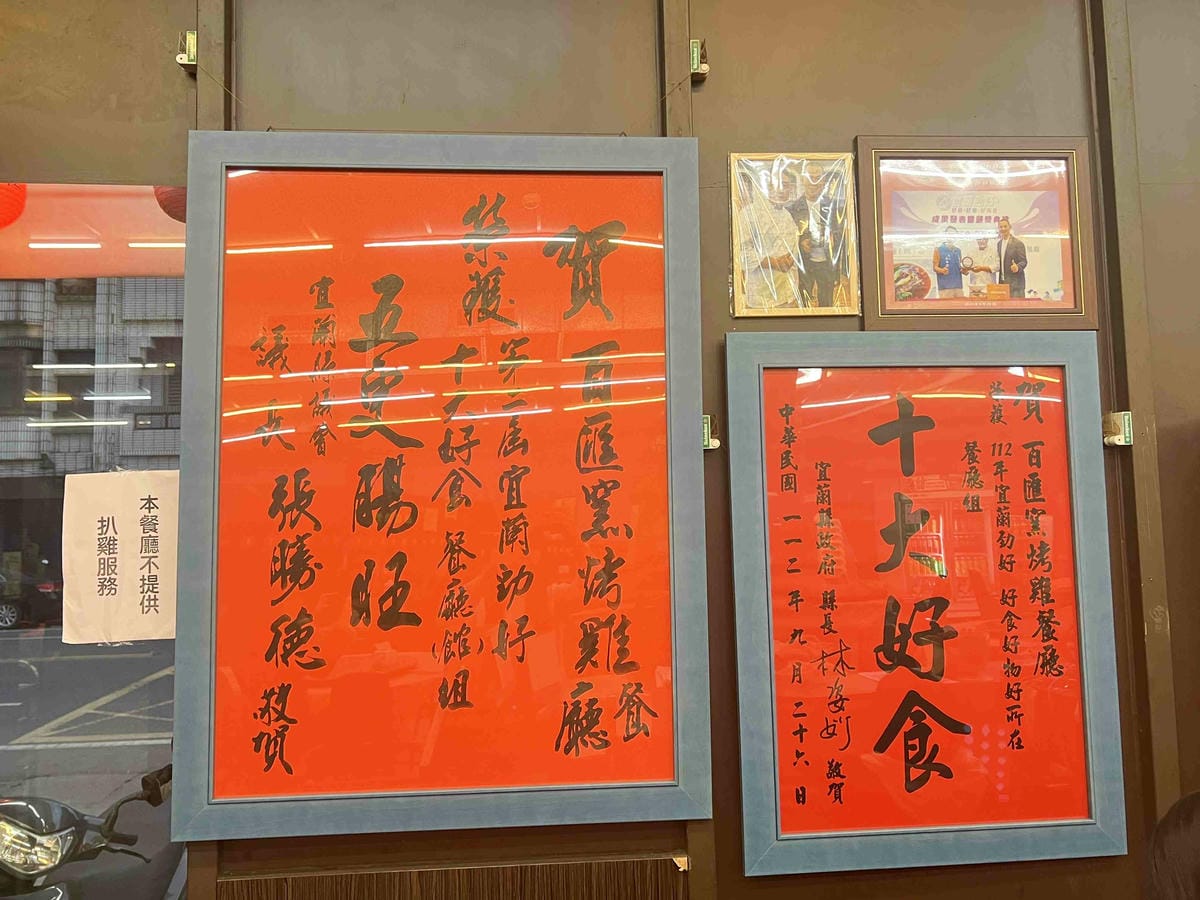 賀 百匯窯烤雞餐廳
榮獲 第二屆宜蘭勁好
十大好食 餐廳(館)組
五更腸旺
宜蘭縣議會
議長 張勝德 敬賀
賀 百匯窯烤雞餐廳
榮獲 112年宜蘭勁好 好食好物好所在
餐廳組
十大好食
宜蘭縣政府 縣長 林姿妙 敬賀
中華民國 一一二年九月二十六日
本餐廳不提供
扒雞服務
成果發表暨頒獎典禮